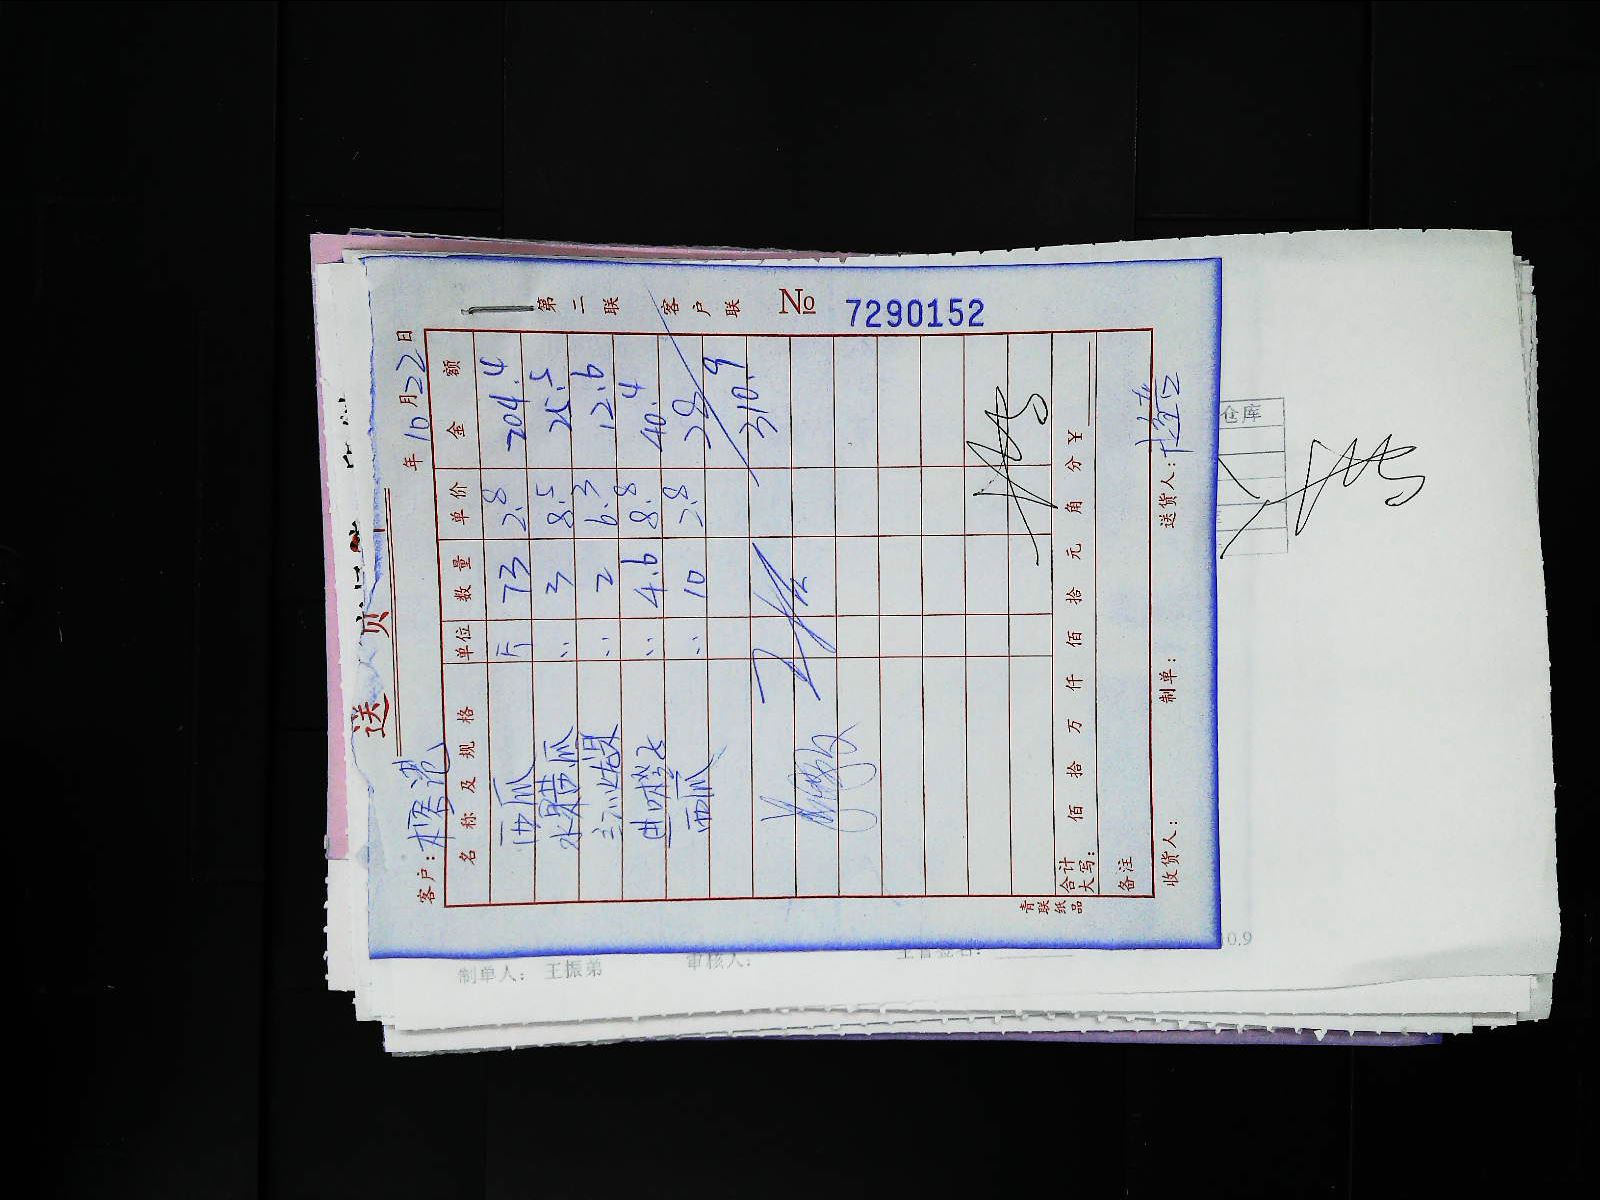 送 货
第二联 客户联 № 7290152
客户: 年10月22日
名称及规格 单位 数量 单价 金额
西瓜 斤 73 2.8 204.4
水晶黄瓜 〃 3 8.5 25.5
〃 2 6.3 12.6
〃 4.6 8.8 40.4
西瓜 〃 10 2.8 28
310.9
合计大写: 佰 拾 万 仟 佰 拾 元 角 分 ¥
备注
收货人: 制单: 送货人:
青联纸品
仓库
制单人: 王振弟 审核人: 主管签名: 10.9